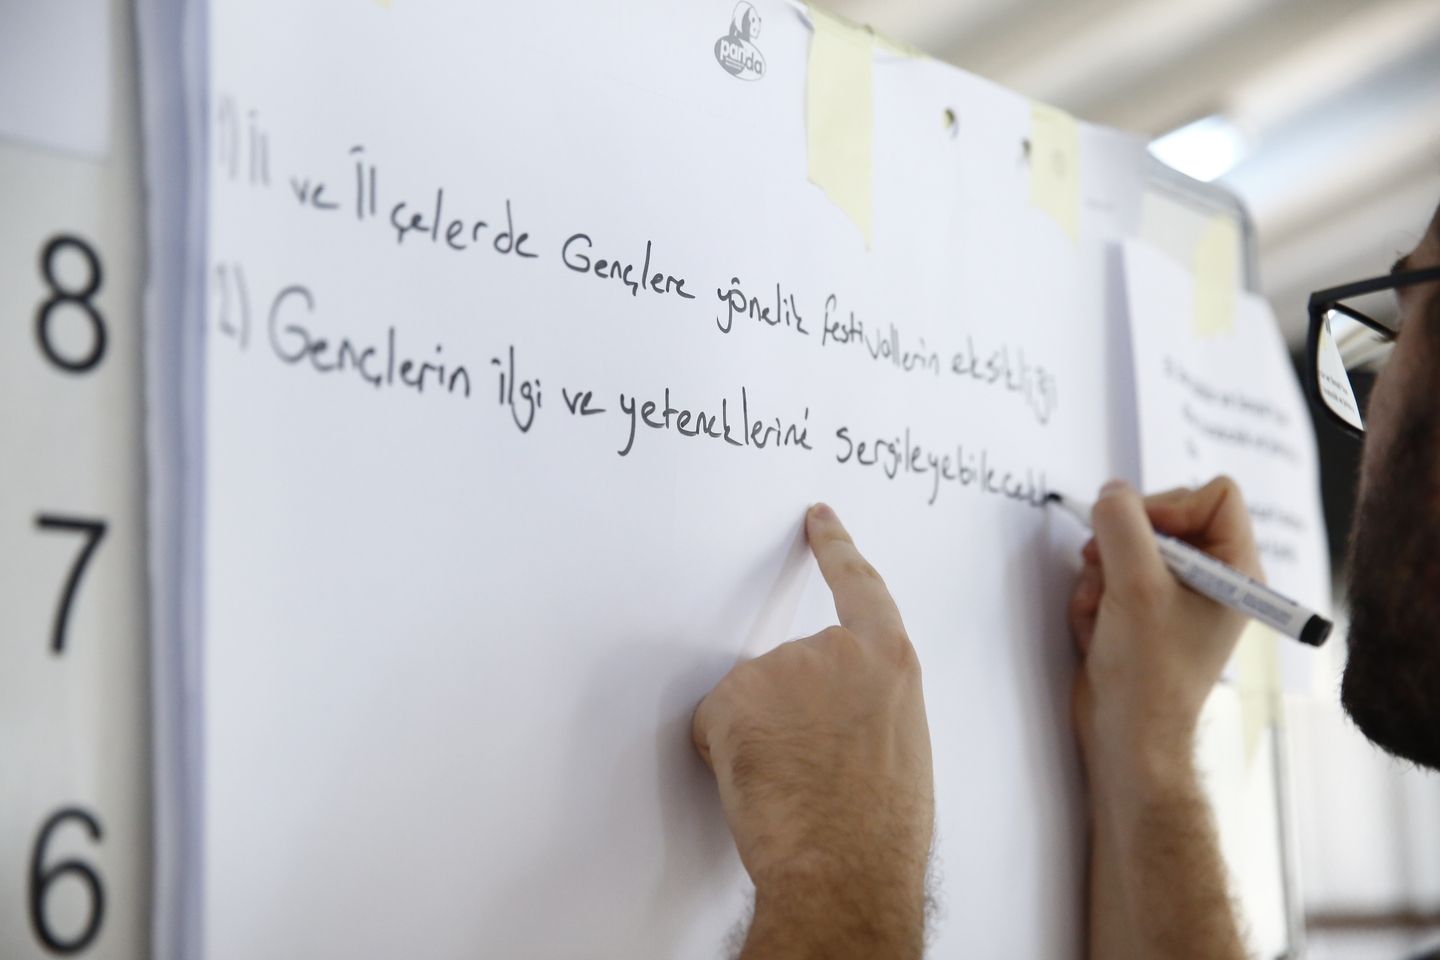 panda
1) İl ve İlçelerde Gençlere yönelik festivallerin eksikliği
2) Gençlerin ilgi ve yeteneklerini sergileyebilecekl
8
7
6